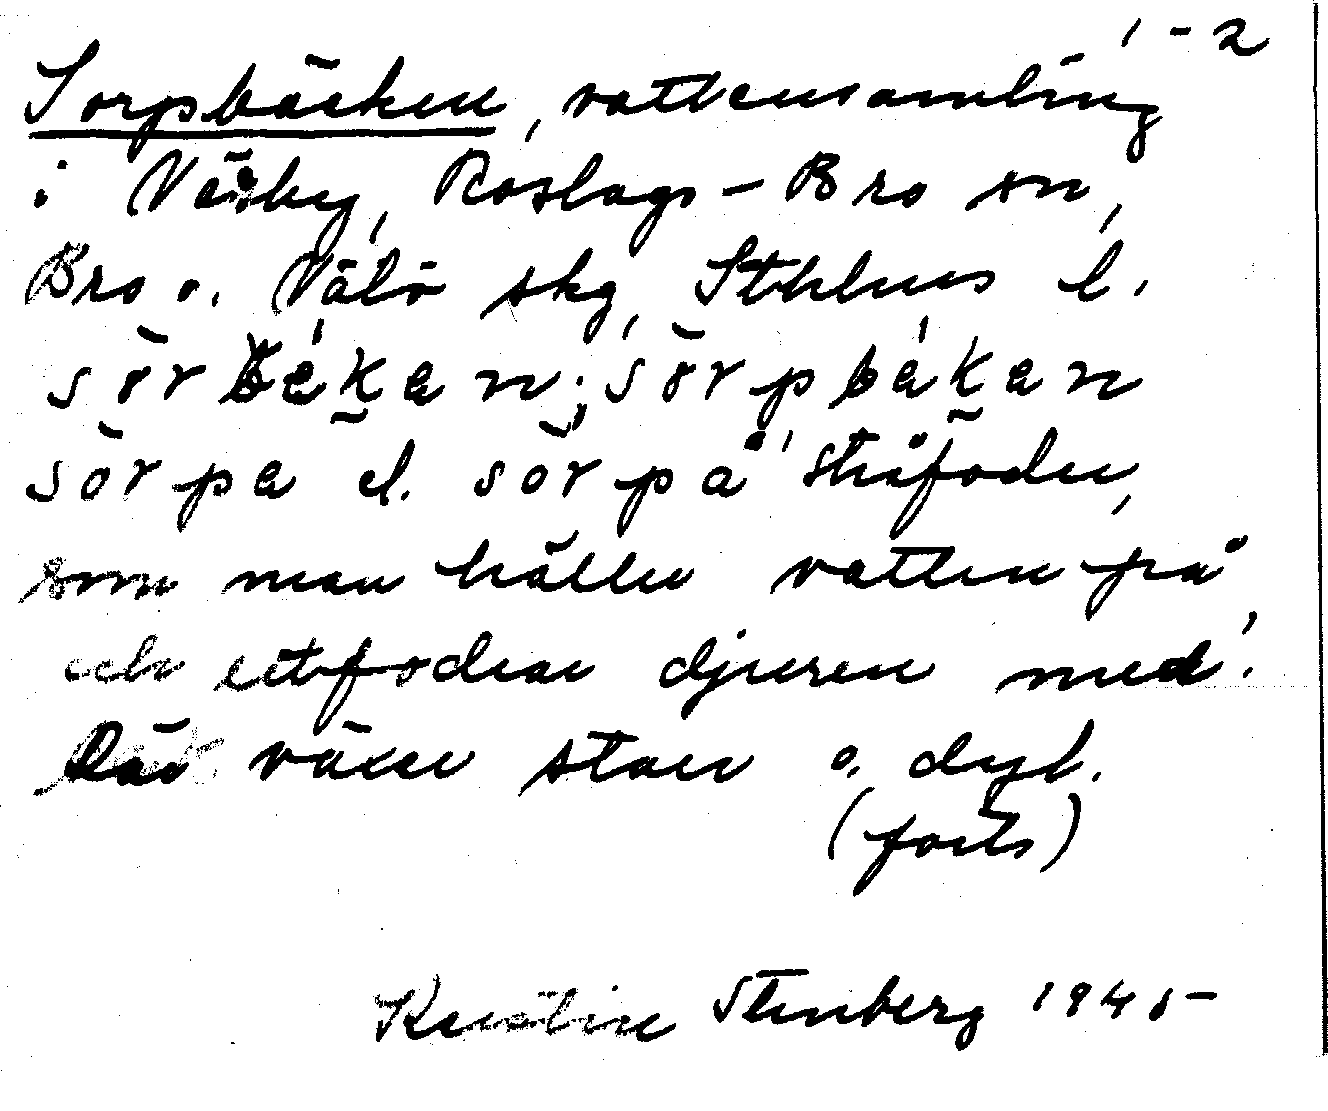 1-2
Sorpbäcken, vattensamling
i Väsby, Roslags-Bro sn,
Bro o. Vätö skg, Sthlms l.
sörbäkan; sörpbäkan
sörpa el. sörpå 'stråfoder,
som man häller vatten på
och utfodrar djuren med'.
Där växer starr o. dyl.
(forts)
Kerstin Stenberg 1945